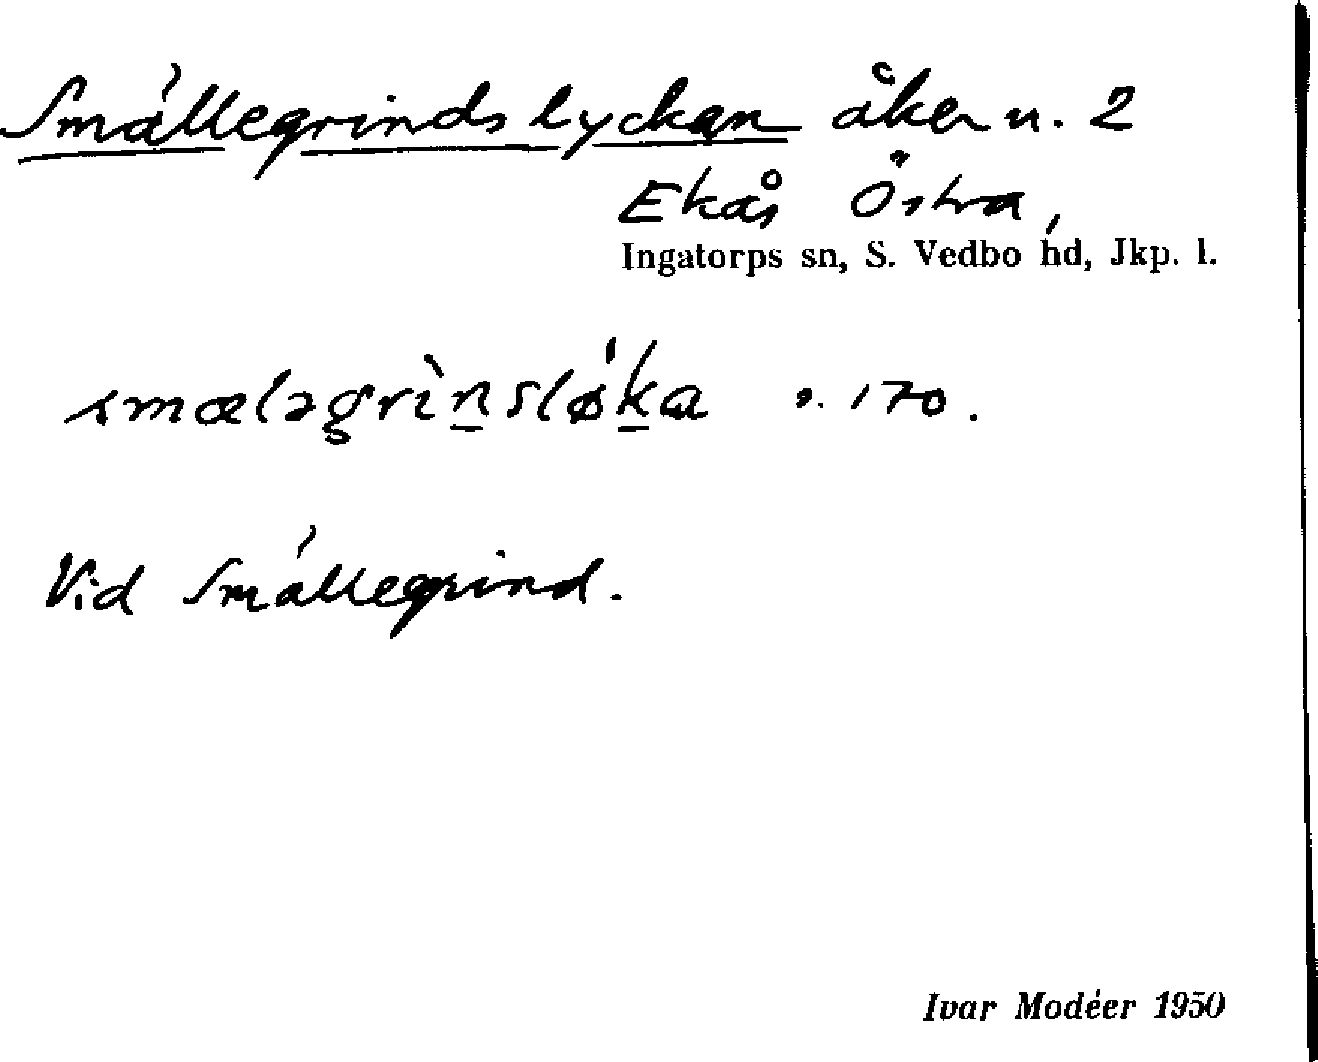 Smällegrindslyckan åker u. 2
Ekås Östra,
Ingatorps sn, S. Vedbo hd, Jkp. l.
smæləgrìnsløka 170.
Vid Smällegrind.
Ivar Modéer 1950